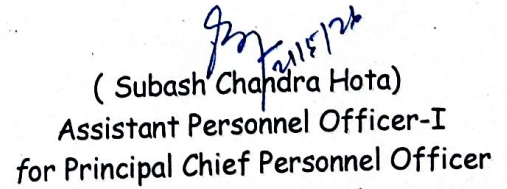 ( Subash Chandra Hota)
Assistant Personnel Officer-I
for Principal Chief Personnel Officer